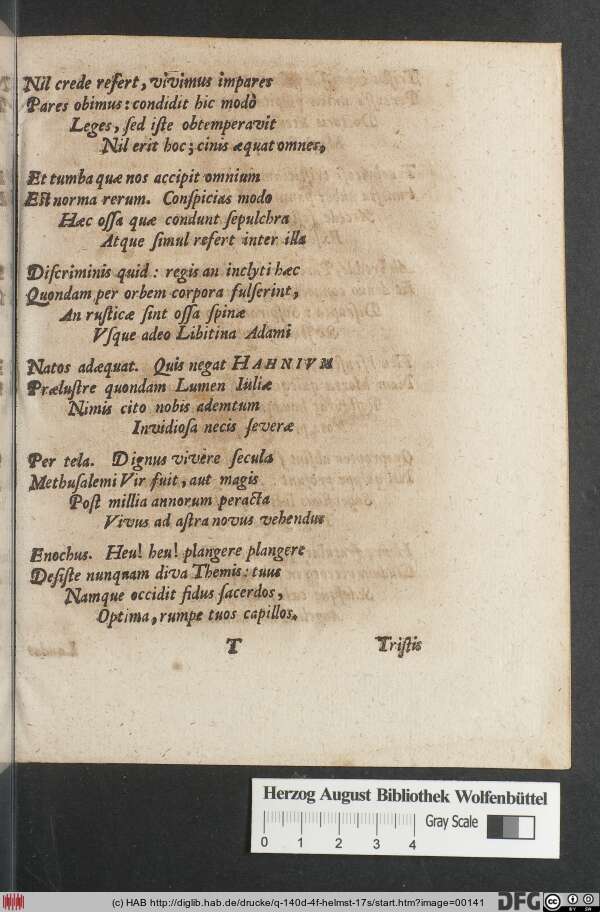 Nil crede refert, vivimus impares
Pares obimus: condidit hic modò
Leges, ſed iſte obtemperavit
Nil erit hoc; cinis æquat omnes.
Et tumba quæ nos accipit omnium
Eſt norma rerum. Conſpicias modo
Hæc oſſa quæ condunt ſepulchra
Atque ſimul refert inter illa
Diſcriminis quid: regis an inclyti hæc
Quondam per orbem corpora fulſerint,
An ruſticæ ſint oſſa ſpinæ
Vſque adeo Libitina Adami
Natos adæquat. Quis negat HAHNIVM
Præluſtre quondam Lumen Iuliæ
Nimis cito nobis ademtum
Invidioſa necis ſeveræ
Per tela. Dignus vivere ſecula
Methuſalemi Vir fuit, aut magis
Poſt millia annorum peracta
Vivus ad aſtra novus vehendus
Enochus. Heu! heu! plangere plangere
Deſiſte nunquam diva Themis: tuus
Namque occidit fidus ſacerdos,
Optima, rumpe tuos capillos.
T Triſtis
Herzog August Bibliothek Wolfenbüttel
0 1 2 3 4 Gray Scale
(c) HAB http://diglib.hab.de/drucke/q-140d-4f-helmst-17s/start.htm?image=00141
DFG CC BY SA